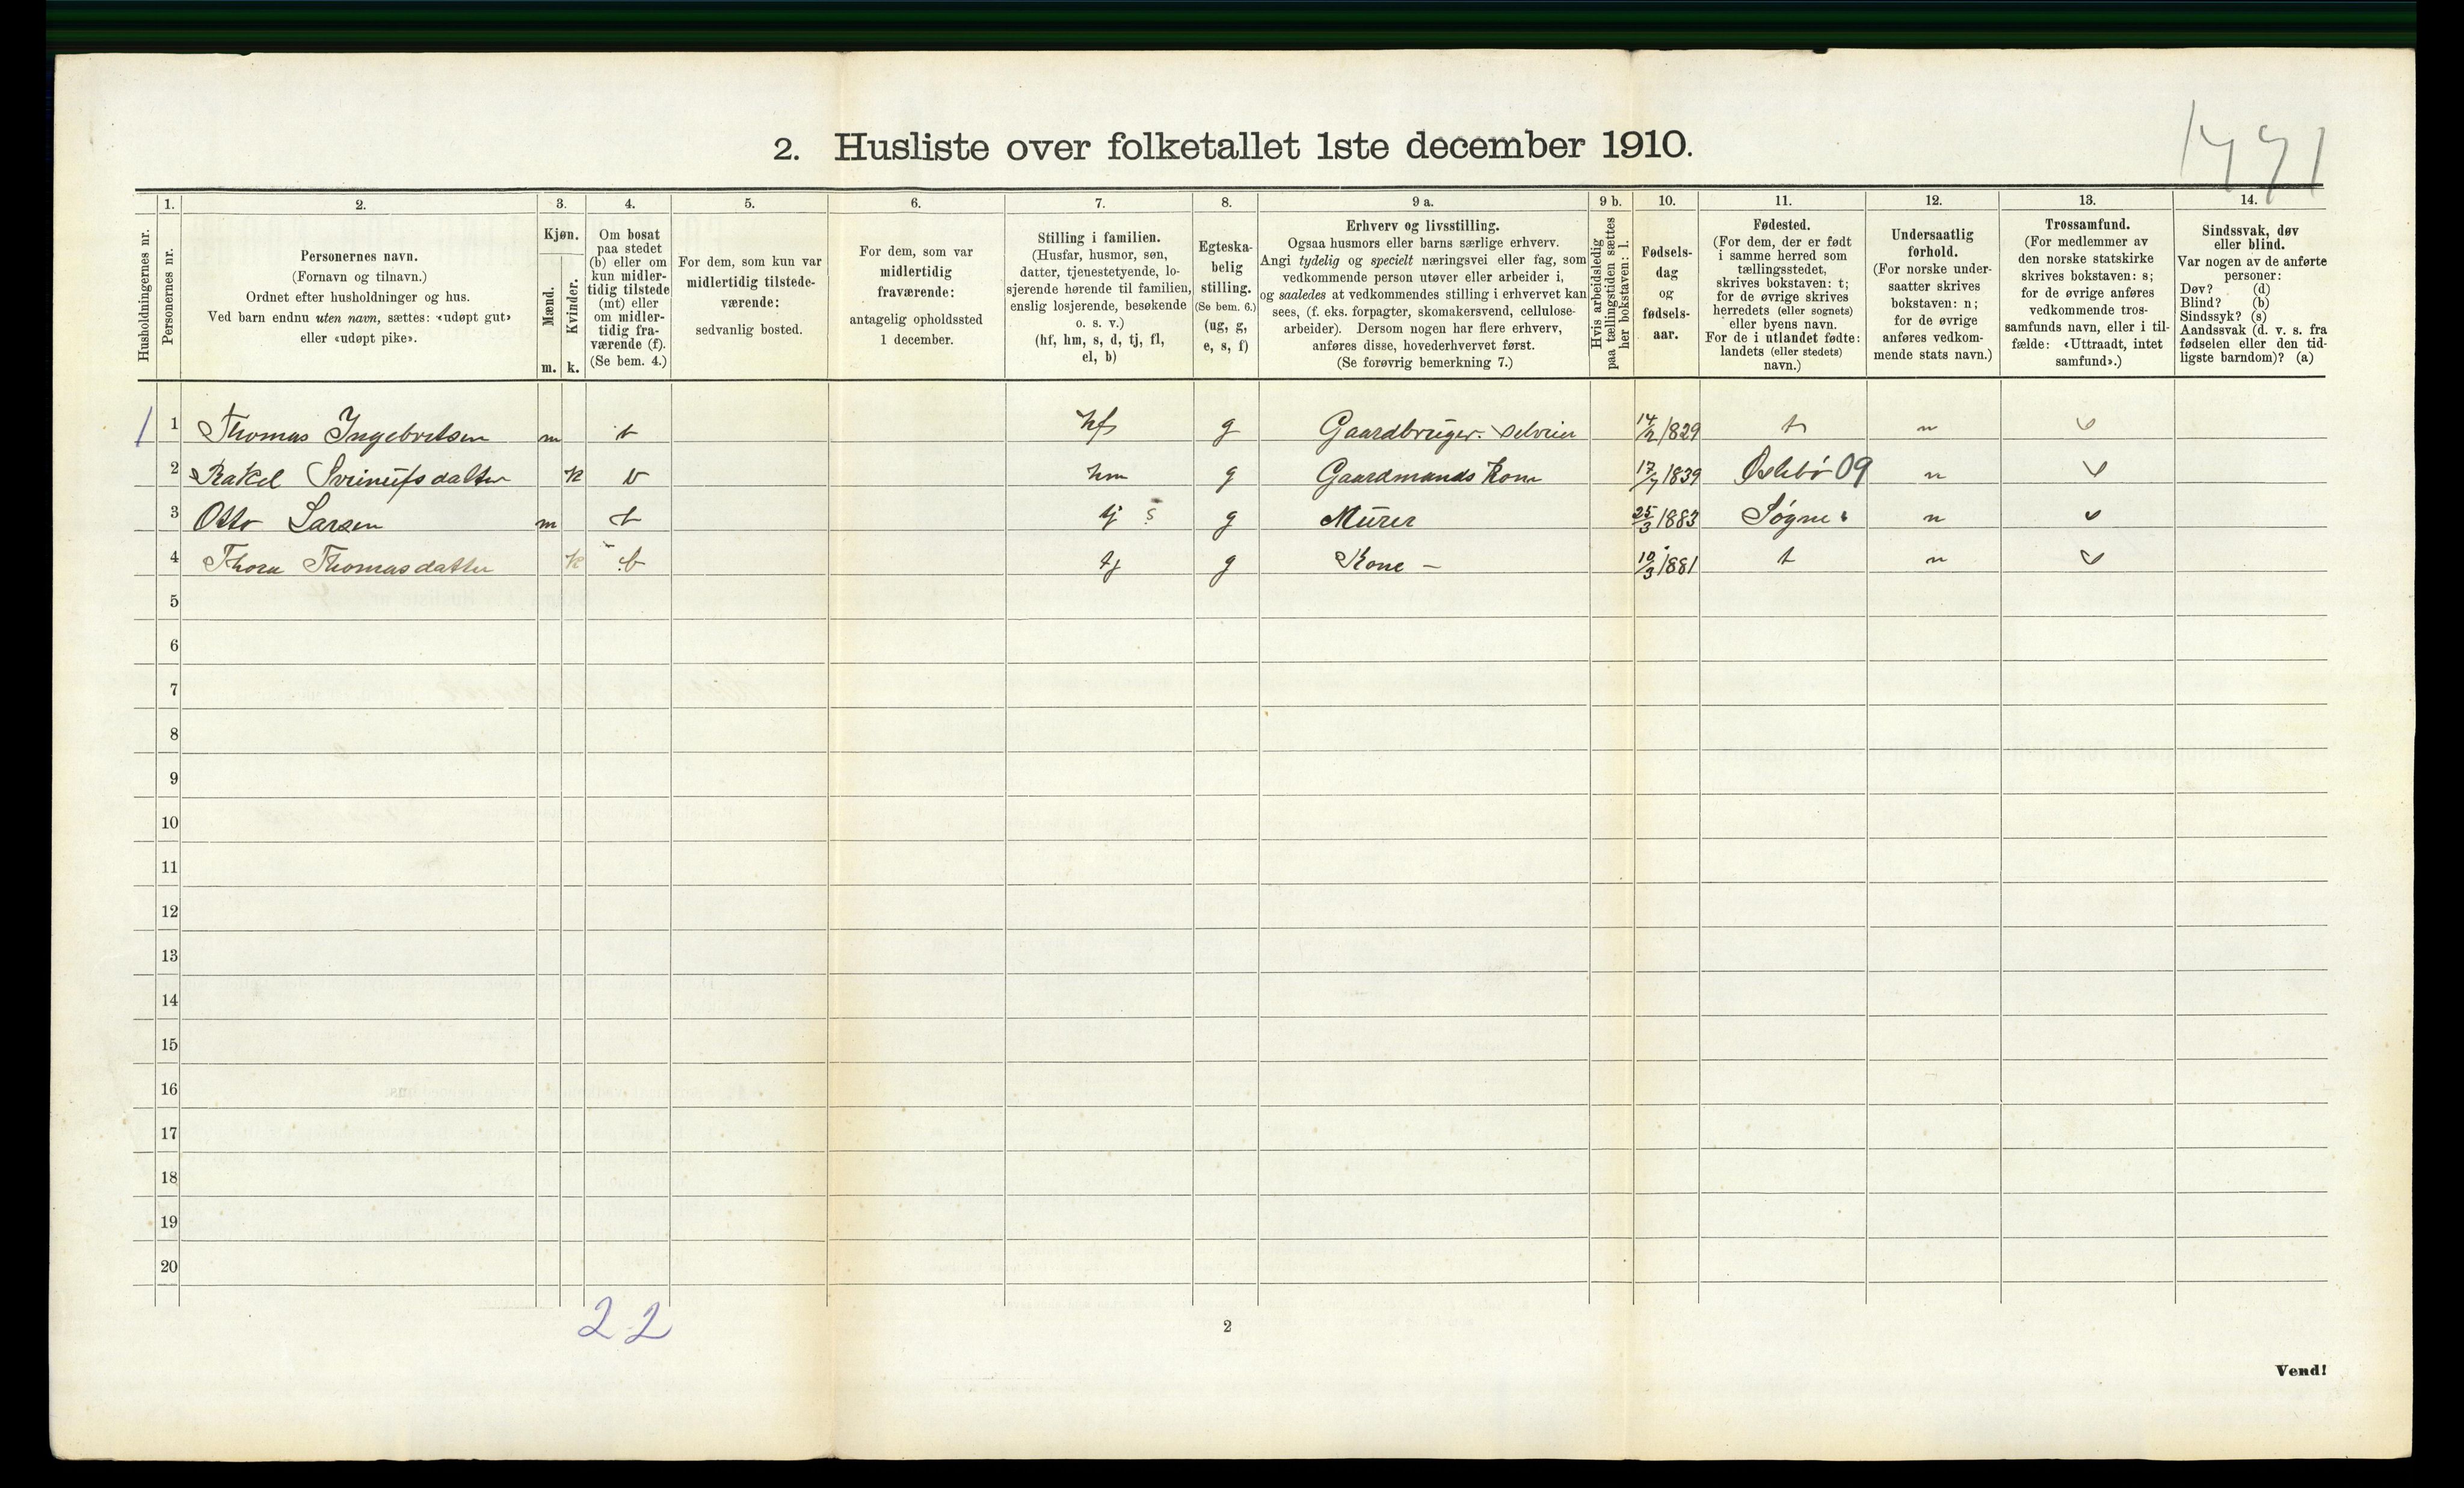 1771
2. Husliste over folketallet 1ste december 1910.
Husholdningernes nr.
1. Personernes nr.
2. Personernes navn. (Fornavn og tilnavn.) Ordnet efter husholdninger og hus. Ved barn endnu uten navn, sættes: «udøpt gut» eller «udøpt pike».
3. Kjøn. Mænd. m. Kvinder. k.
4. Om bosat paa stedet (b) eller om kun midler-tidig tilstede (mt) eller om midler-tidig fra-værende (f). (Se bem. 4.)
5. For dem, som kun var midlertidig tilstede-værende: sedvanlig bosted.
6. For dem, som var midlertidig fraværende: antagelig opholdssted 1 december.
7. Stilling i familien. (Husfar, husmor, søn, datter, tjenestetyende, lo-sjerende hørende til familien, enslig losjerende, besøkende o. s. v.) (hf, hm, s, d, tj, fl, el, b)
8. Egteska-belig stilling. (Se bem. 6.) (ug, g, e, s, f)
9 a. Erhverv og livsstilling. Ogsaa husmors eller barns særlige erhverv. Angi tydelig og specielt næringsvei eller fag, som vedkommende person utøver eller arbeider i, og saaledes at vedkommendes stilling i erhvervet kan sees, (f. eks. forpagter, skomakersvend, cellulose-arbeider). Dersom nogen har flere erhverv, anføres disse, hovederhvervet først. (Se forøvrig bemerkning 7.)
9 b. Hvis arbeidsledig paa tællingstiden sættes her bokstaven: l.
10. Fødsels-dag og fødsels-aar.
11. Fødested. (For dem, der er født i samme herred som tællingsstedet, skrives bokstaven: t; for de øvrige skrives herredets (eller sognets) eller byens navn. For de i utlandet fødte: landets (eller stedets) navn.)
12. Undersaatlig forhold. (For norske under-saatter skrives bokstaven: n; for de øvrige anføres vedkom-mende stats navn.)
13. Trossamfund. (For medlemmer av den norske statskirke skrives bokstaven: s; for de øvrige anføres vedkommende tros-samfunds navn, eller i til-fælde: «Uttraadt, intet samfund».)
14. Sindssvak, døv eller blind. Var nogen av de anførte personer: Døv? (d) Blind? (b) Sindssyk? (s) Aandssvak (d. v. s. fra fødselen eller den tid-ligste barndom)? (a)
1 1 Thomas Ingebretsen m b hf g Gaardbruger. Selveier 14/2 1829 t n s
2 Rakel Sveinufsdatter k b hm g Gaardmands Kone 17/7 1839 Øslebø 09 n s
3 Otto Larsen m b tj s g Murer 25/3 1883 Søgne n s
4 Thora Thomasdatter k b tj g Kone — 10/3 1881 t n s
5
6
7
8
9
10
11
12
13
14
15
16
17
18
19
20
2 2
2
Vend!